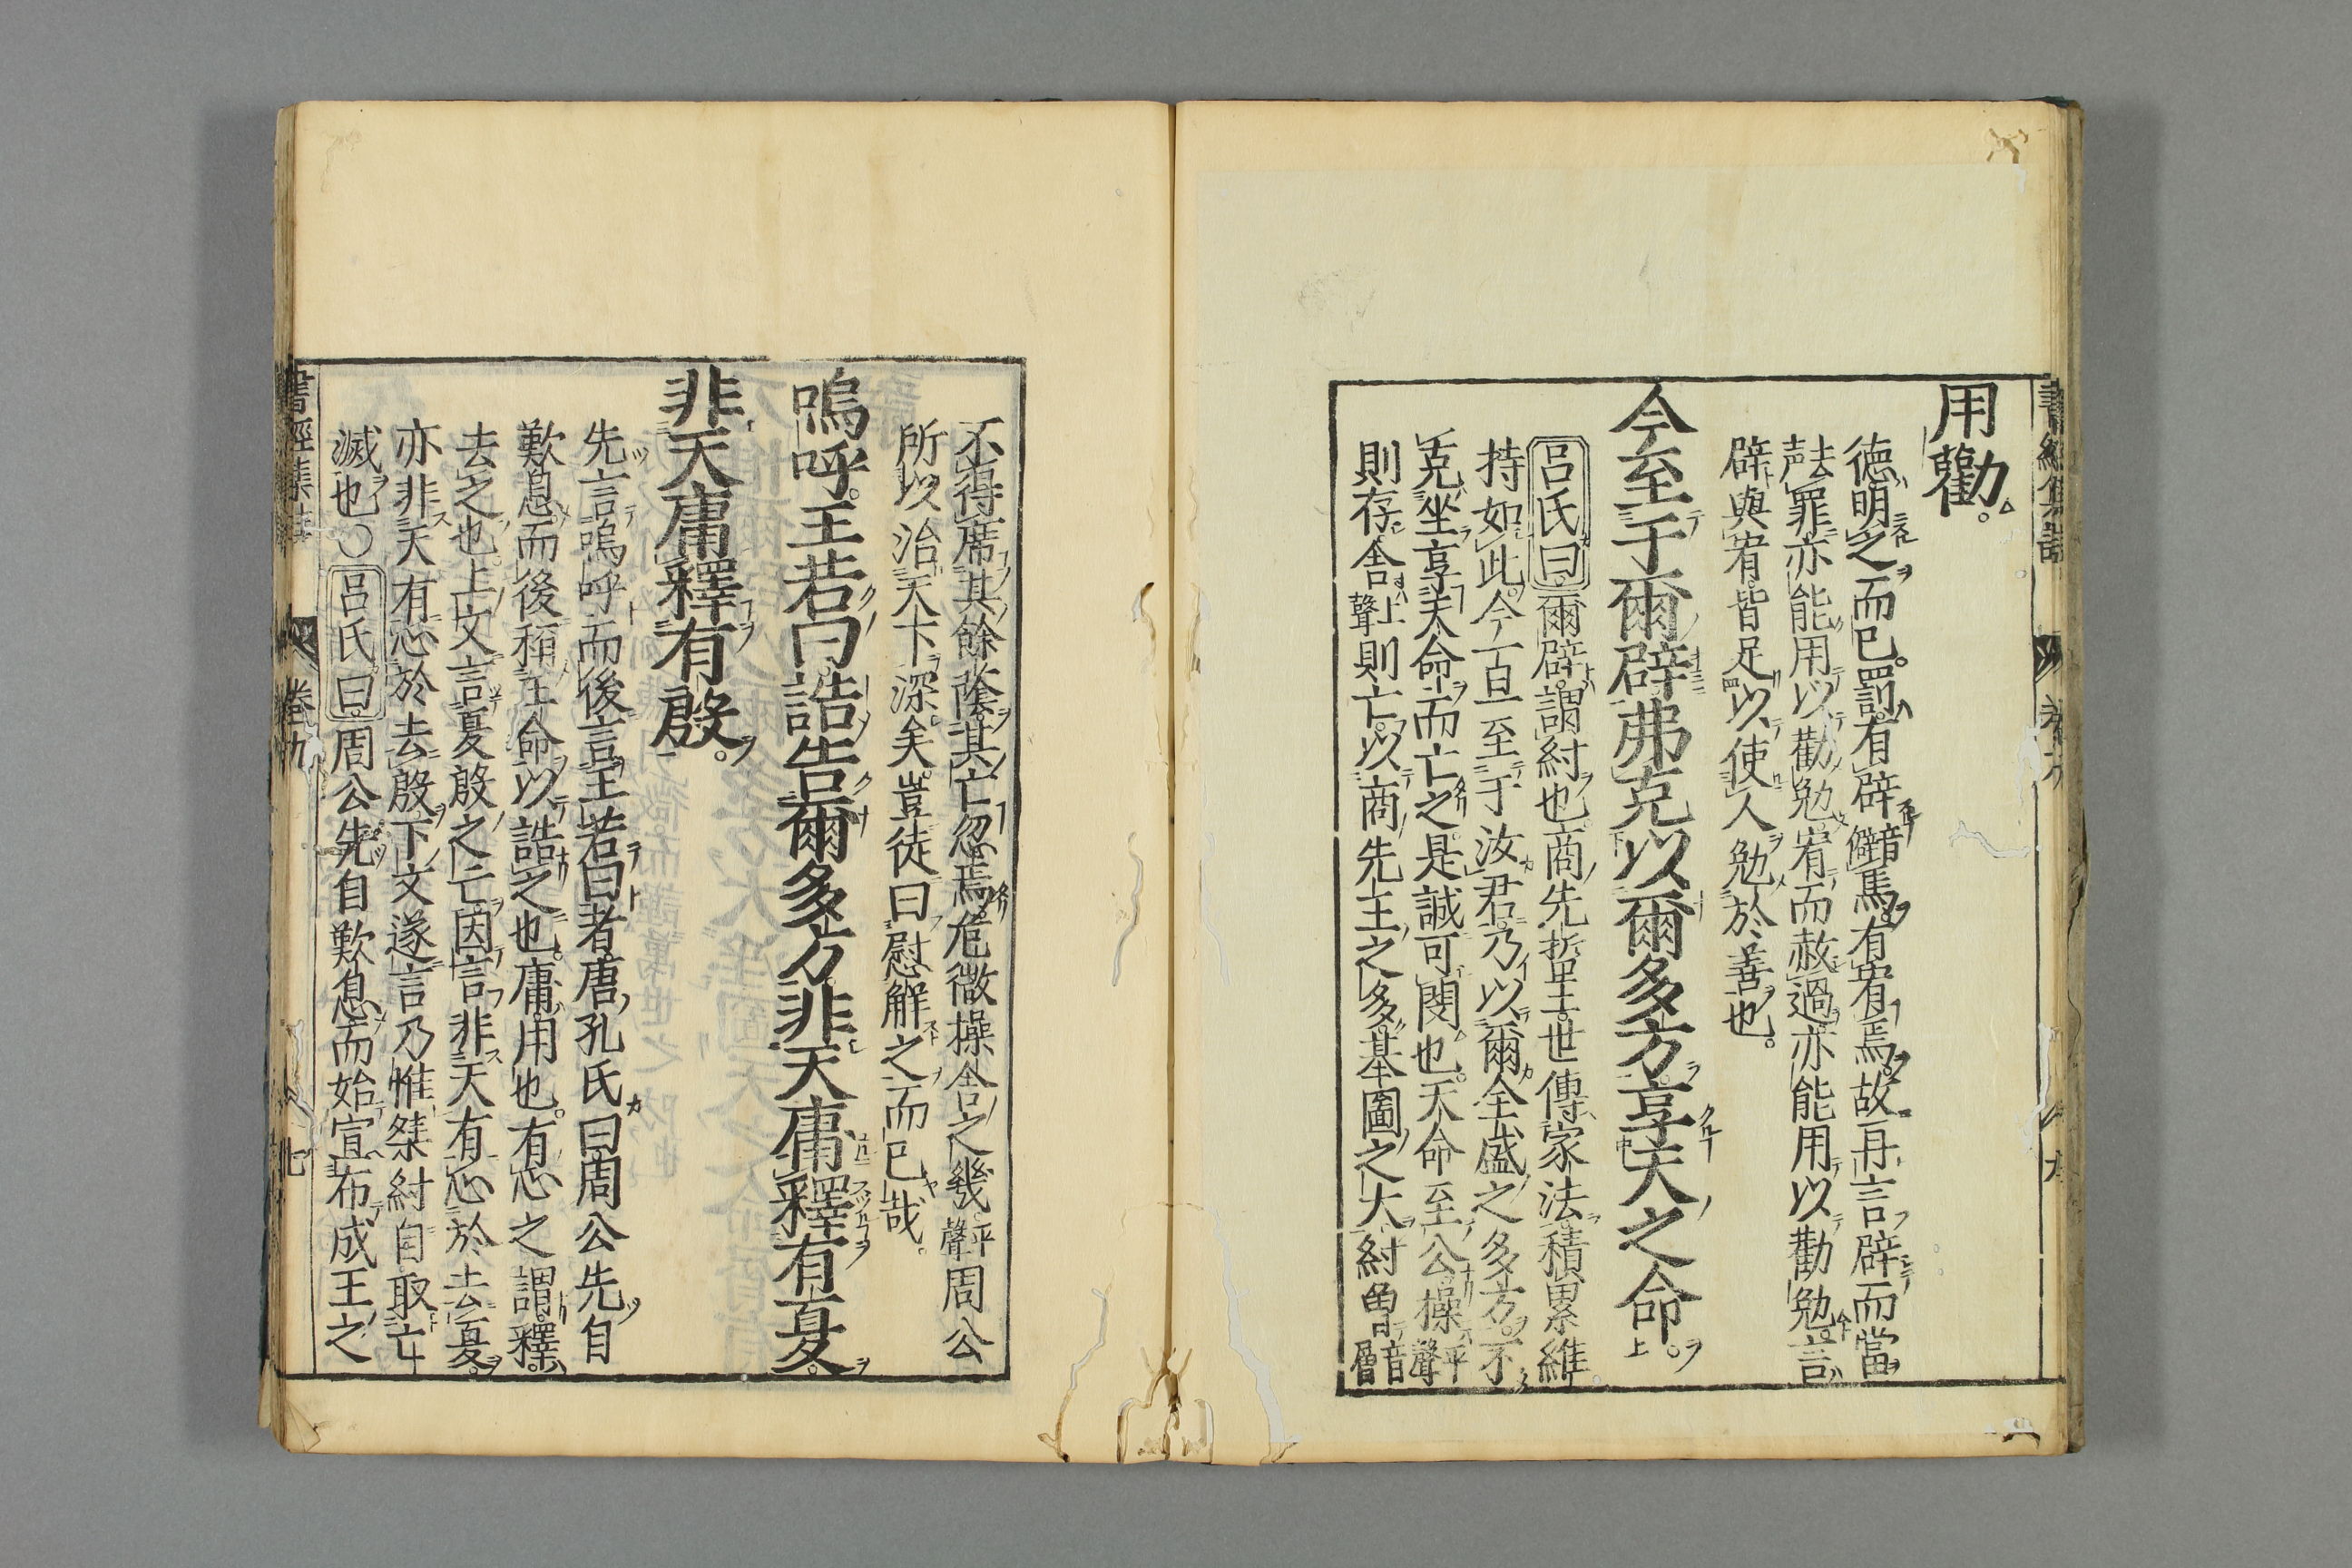 用勸
德明之而已罰有辟音僻焉有宥焉故再言辟而當
去聲罪亦能用以勸勉宥而赦過亦能用以勸勉言
辟與宥皆足以使人勉於善也
今至于爾辟弗克以爾多方享天之命
呂氏曰爾辟謂紂也商先哲王世傳家法積累維
持如此今一旦至于汝君乃以爾全盛之多方不
克坐享天命而亡之是誠可閔也天命至公操平聲
則存舍上聲則亡以商先王之多基圖之大紂曾音層
不得席其餘蔭其亡忽焉危微操舍之幾平聲周公
所以治天下深矣豈徒曰慰解之而已哉
嗚呼王若曰誥告爾多方非天庸釋有夏
非天庸釋有殷
先言嗚呼而後言王若曰者唐孔氏曰周公先自
歎息而後稱王命以誥之也庸用也有心之謂釋
去之也上文言夏殷之亡因言非天有心於去夏
亦非天有心於去殷下文遂言乃惟桀紂自取亡
滅也○呂氏曰周公先自歎息而始宣布成王之
書經集註 卷九 七